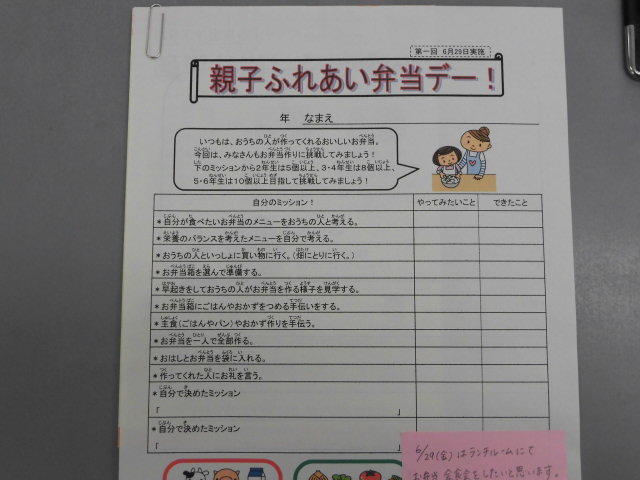 第一回 6月29日実施
親子ふれあい弁当デー！
年 なまえ
いつもは、おうちの人が作ってくれるおいしいお弁当。
今回は、みなさんもお弁当作りに挑戦してみましょう！
下のミッションから2年生は5個以上、3・4年生は8個以上、
5・6年生は10個以上目指して挑戦してみましょう！
自分のミッション！ やってみたいこと できたこと
＊自分が食べたいお弁当のメニューをおうちの人と考える。
＊栄養のバランスを考えたメニューを自分で考える。
＊おうちの人といっしょに買い物に行く。（畑にとりに行く。）
＊お弁当箱を選んで準備する。
＊早起きをしておうちの人がお弁当を作る様子を見学する。
＊お弁当箱にごはんやおかずをつめる手伝いをする。
＊主食（ごはんやパン）やおかず作りを手伝う。
＊お弁当を一人で全部作る。
＊おはしとお弁当を袋に入れる。
＊作ってくれた人にお礼を言う。
＊自分で決めたミッション
「 」
＊自分で決めたミッション
「 」
6/29(金)はランチルームにて
お弁当会食会をしたいと思います。